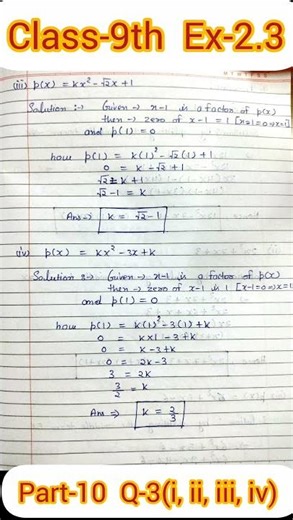 Class-9th Ex-2.3
(iii) p(x) = kx² - √2x + 1
Solution :→ Given → x-1 is a factor of p(x)
then → zero of x-1 = 1 [x-1=0⇒x=1]
and p(1) = 0
have p(1) = k(1)² - √2(1) + 1
0 = k - √2 + 1
√2 = k + 1
√2 - 1 = k
Ans ⇒ k = √2 - 1
(iv) p(x) = kx² - 3x + k
Solution :→ Given → x-1 is a factor of p(x)
then → zero of x-1 is 1 [x-1=0⇒x=1]
and p(1) = 0
have p(1) = k(1)² - 3(1) + k
0 = k×1 - 3 + k
0 = k - 3 + k
0 = 2k - 3
3 = 2k
3/2 = k
Ans ⇒ k = 2/3
Part-10 Q-3(i, ii, iii, iv)